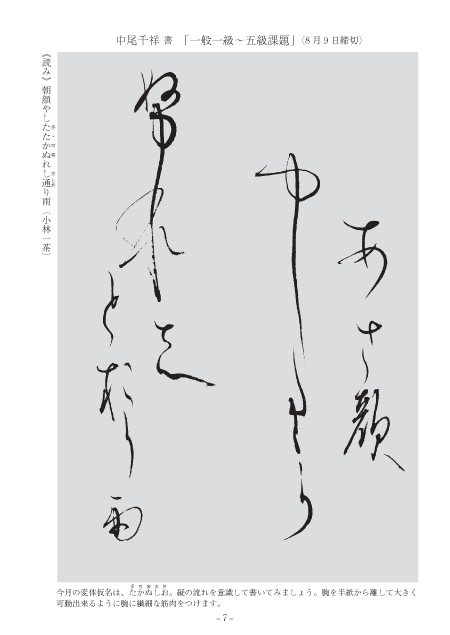 中尾千祥 書 「一般一級～五級課題」(8月9日締切)
あさ顔
やし多ゝ可
努れ志
と於り雨
《読み》朝顔やしたたかぬれし通り雨(小林一茶)
今月の変体仮名は、たかぬしお。縦の流れを意識して書いてみましょう。腕を半紙から離して大きく
可動出来るように腕に繊細な筋肉をつけます。
-7-